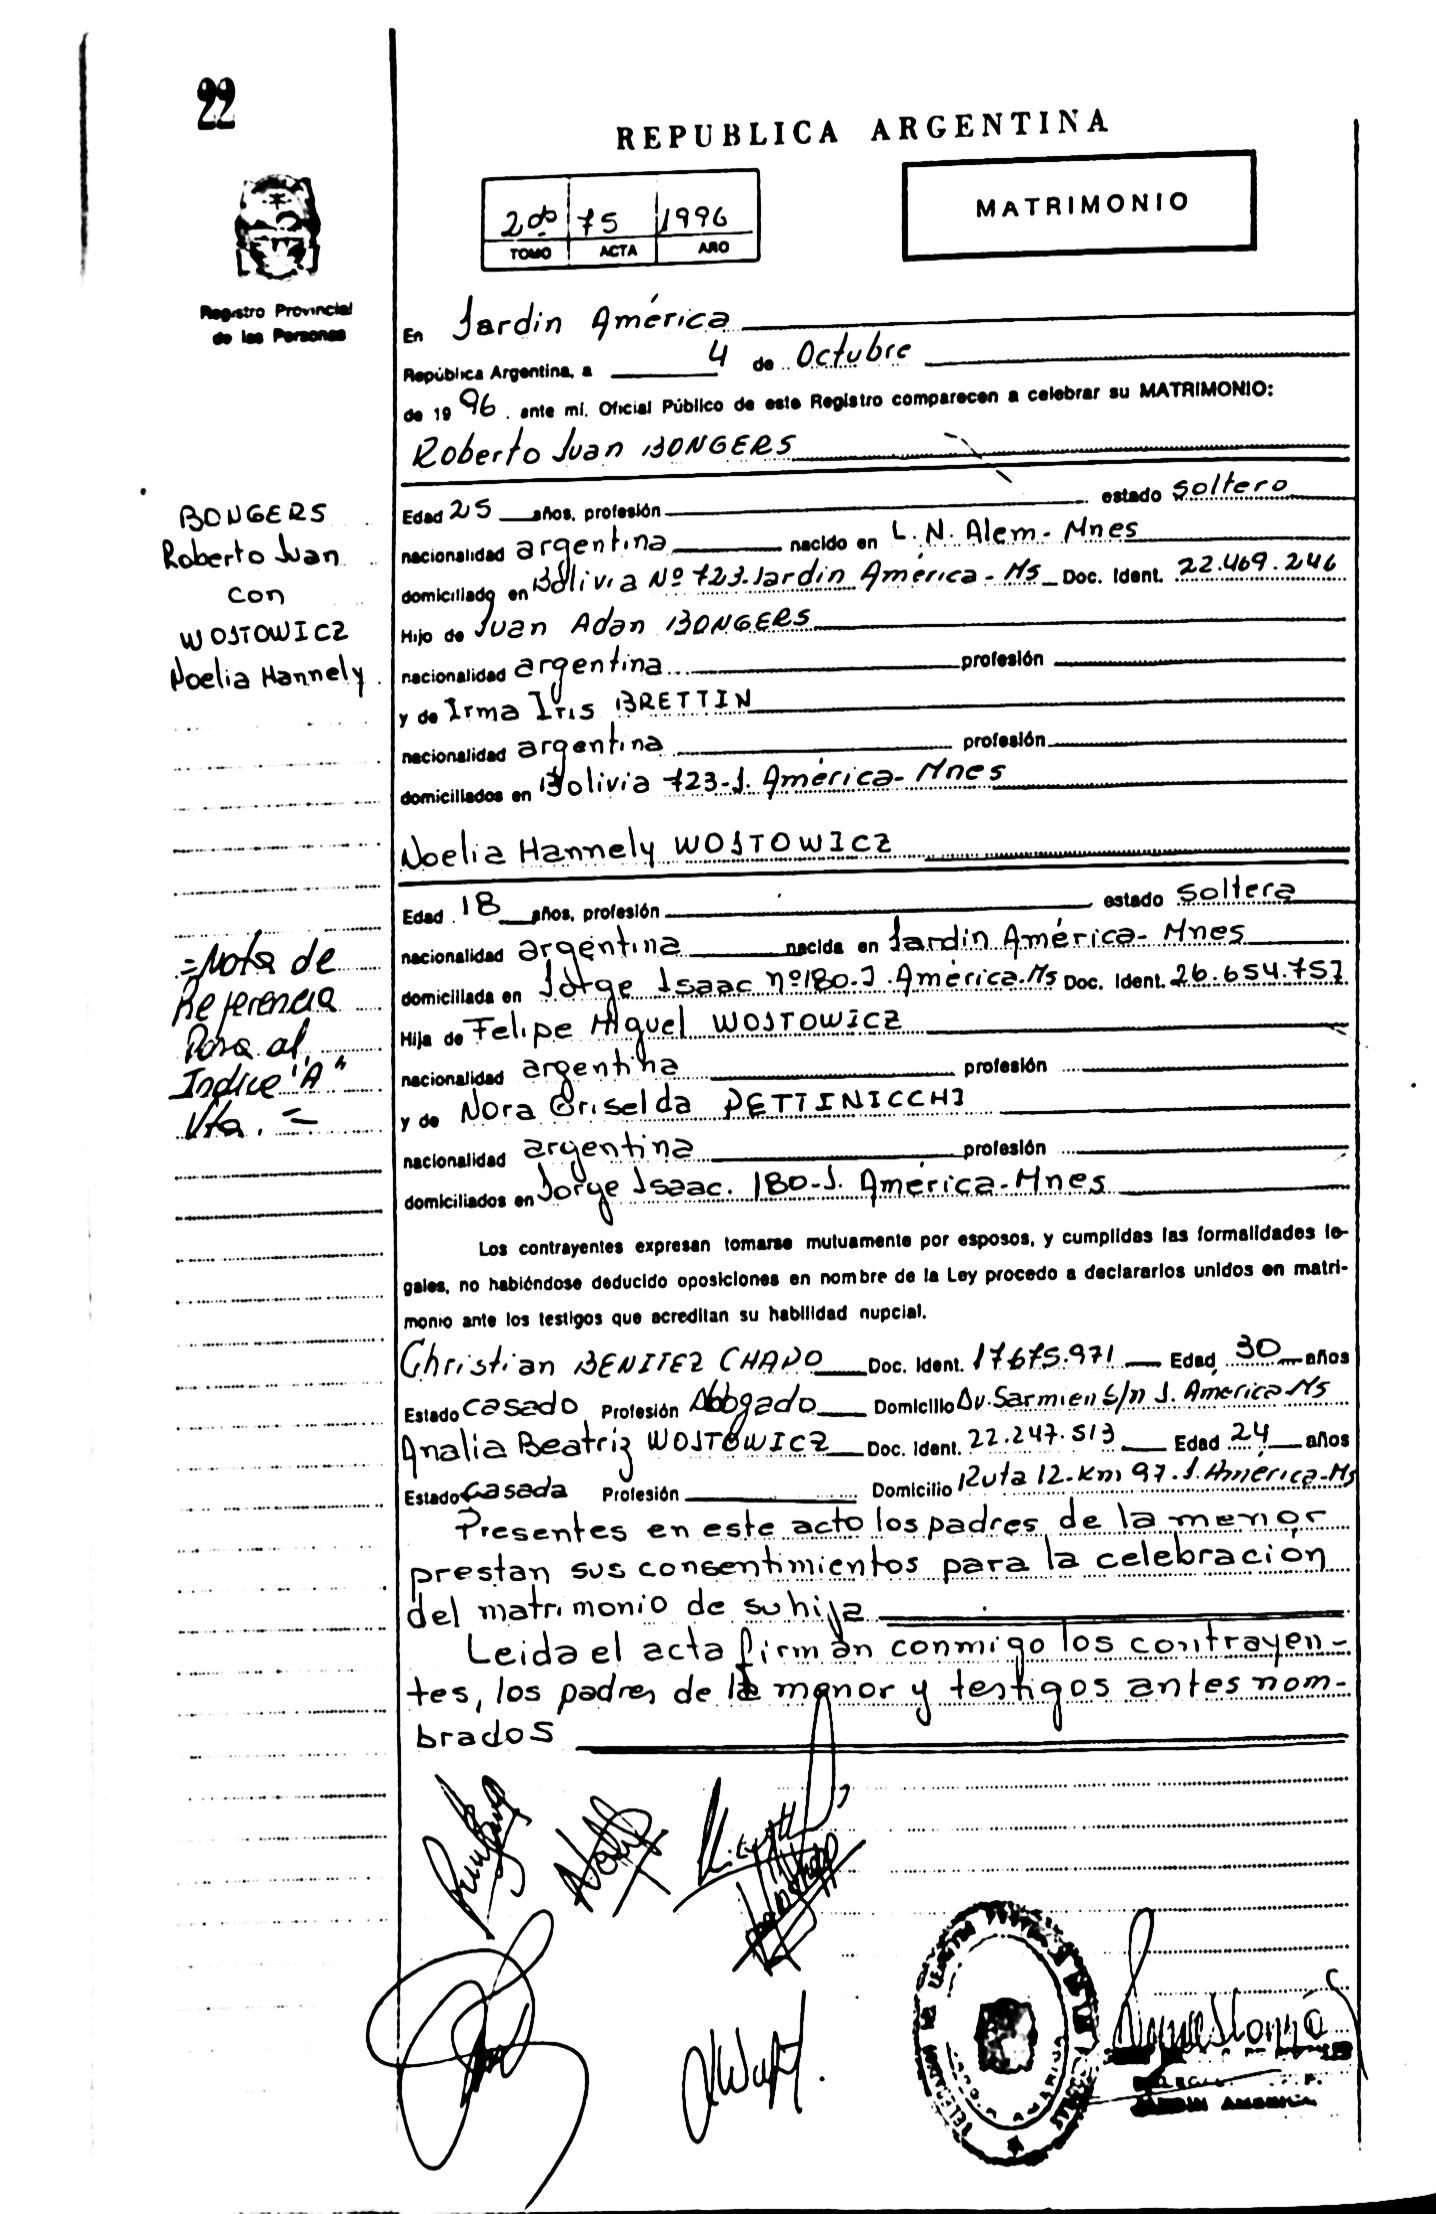 22
REPUBLICA ARGENTINA
2do 75 1996
TOMO ACTA AÑO
MATRIMONIO
Registro Provincial
de las Personas
En Jardin América
República Argentina, a 4 de Octubre
de 1996. ante mí. Oficial Público de este Registro comparecen a celebrar su MATRIMONIO:
Roberto Juan BONGERS
BONGERS
Roberto Juan
con
WOJTOWICZ
Noelia Hannely
Edad 25 años, profesión estado soltero
nacionalidad argentina nacido en L. N. Alem - Mnes
domiciliado en Bolivia Nº 723. Jardin América - Ms Doc. Ident. 22.469.246
Hijo de Juan Adan BONGERS
nacionalidad argentina profesión
y de Irma Iris BRETTIN
nacionalidad argentina profesión
domiciliados en Bolivia 723 - J. América - Mnes
Noelia Hannely WOJTOWICZ
Edad 18 años, profesión estado soltera
nacionalidad argentina nacida en Jardin América - Mnes
domiciliada en Jorge Isaac nº 180. J. América. Ms Doc. Ident. 26.654.757
Hija de Felipe Miguel WOJTOWICZ
nacionalidad argentina profesión
y de Nora Griselda PETTINICCHI
nacionalidad argentina profesión
domiciliados en Jorge Isaac. 180 - J. América - Mnes
=Nota de
Referencia
Pasa al
Indice "A"
Vta. =
Los contrayentes expresan tomarse mutuamente por esposos, y cumplidas las formalidades le-
gales, no habiéndose deducido oposiciones en nombre de la Ley procedo a declararlos unidos en matri-
monio ante los testigos que acreditan su habilidad nupcial.
Christian BENITEZ CHAPO Doc. Ident. 17.675.971 Edad 30 años
Estado casado Profesión Abogado Domicilio Av. Sarmien s/n J. América Ms
Analia Beatriz WOJTOWICZ Doc. Ident. 22.247.513 Edad 24 años
Estado casada Profesión Domicilio Ruta 12. Km 97. J. América - Ms
Presentes en este acto los padres de la menor
prestan sus consentimientos para la celebracion
del matrimonio de su hija
Leida el acta firman conmigo los contrayen-
tes, los padres de la menor y testigos antes nom-
brados
JARDIN AMERICA